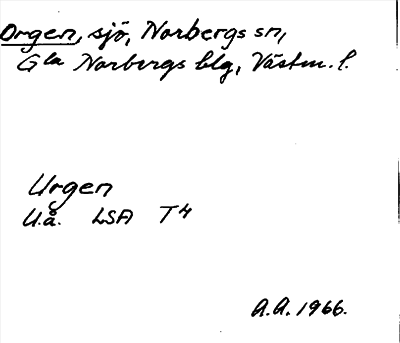 Orgen, sjö, Norbergs sn,
Gla Norbergs blg, Västm. l.
Urgen
U.å. LSA T4
A.A. 1966.